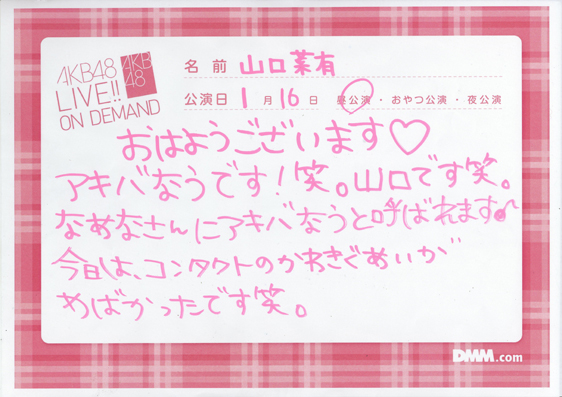 AKB48
LIVE!!
ON DEMAND
AKB
48
名前 山口菜有
公演日 1月16日 昼公演・おやつ公演・夜公演
おはようございます♡
アキバなうです！笑。山口です笑。
なめなさんにアキバなうと呼ばれます。
今日は、コンタクトのかわきぐめいが
めばかったです笑。
DMM.com